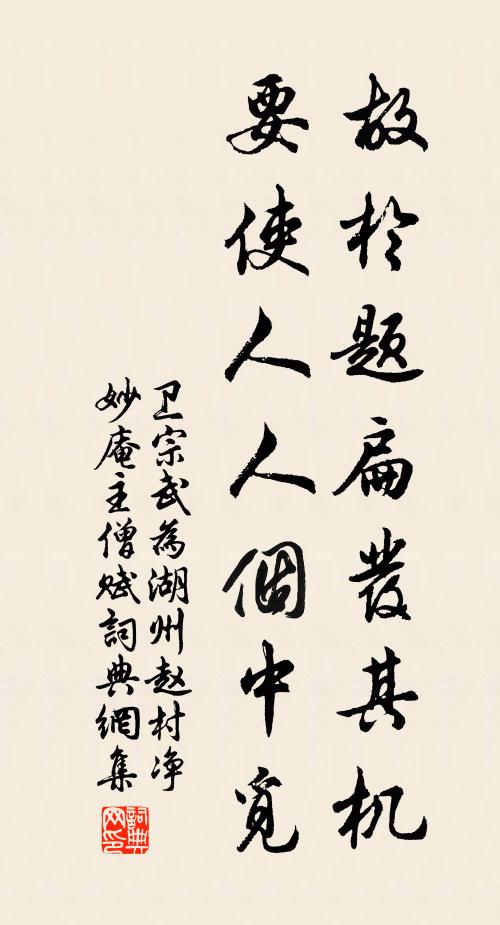 故於题扁發其机
要使人人個中覓
卫宗武為湖州赵村净
妙庵主僧赋詞典網集
詞典网印